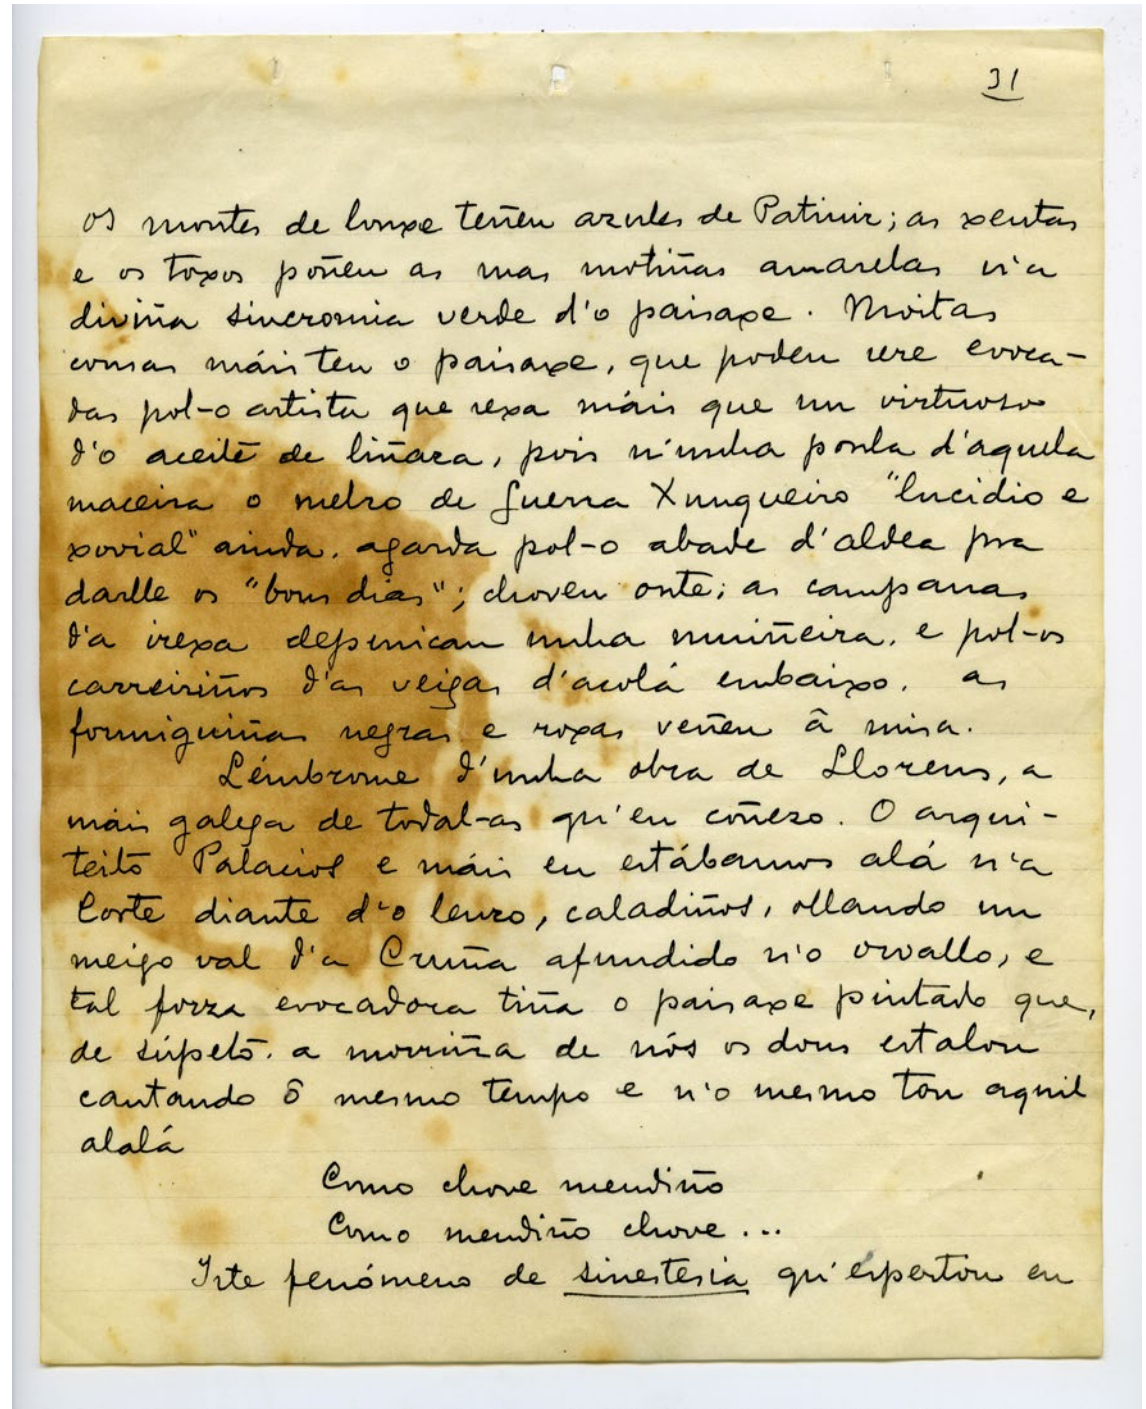 31
os montes de lonxe teñen azules de Patinir; as xestas
e os toxos poñen as suas motiñas amarelas n'a
diviña sincromia verde d'o paisaxe. Moitas
cousas máis ten o paisaxe, que poden sere evoca-
das pol-o artista que sexa máis que un virtuoso
d'o aceite de liñaza, pois n'unha ponla d'aquela
maceira o melro de Guerra Xunqueiro "lucidio e
xovial" ainda. agarda pol-o abade d'aldea pra
darlle os "bons dias"; choveu onte; as campanas
d'a irexa depenican unha muiñeira, e pol-os
carreiriños d'as veigas d'acolá embaixo. as
formiguiñas negras e roxas veñen â misa.
Lémbrome d'unha obra de Llorens, a
máis galega de todal-as qu'eu coñezo. O arqui-
teito Palacios e máis eu estábamos alá n'a
Corte diante d'o lenzo, caladiños, ollando un
meigo val d'a Cruña afundido n'o orvallo, e
tal forza evocadora tiña o paisaxe pintado que,
de súpeto. a morriña de nós os dous estalou
cantando ô mesmo tempo e n'o mesmo ton aquil
alalá
Como chove mendiño
Como mendiño chove...
Iste fenómeno de sinestesia qu'espertou en